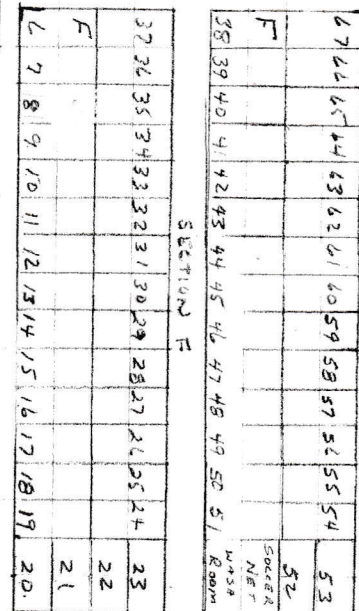 67 66 65 64 63 62 61 60 59 58 57 56 55 54 53
52
F SOCCER
NET
38 39 40 41 42 43 44 45 46 47 48 49 50 51 ROOM
SECTION F
37 36 35 34 33 32 31 30 29 28 27 26 25 24 23
22
F 21
6 7 8 9 10 11 12 13 14 15 16 17 18 19 20